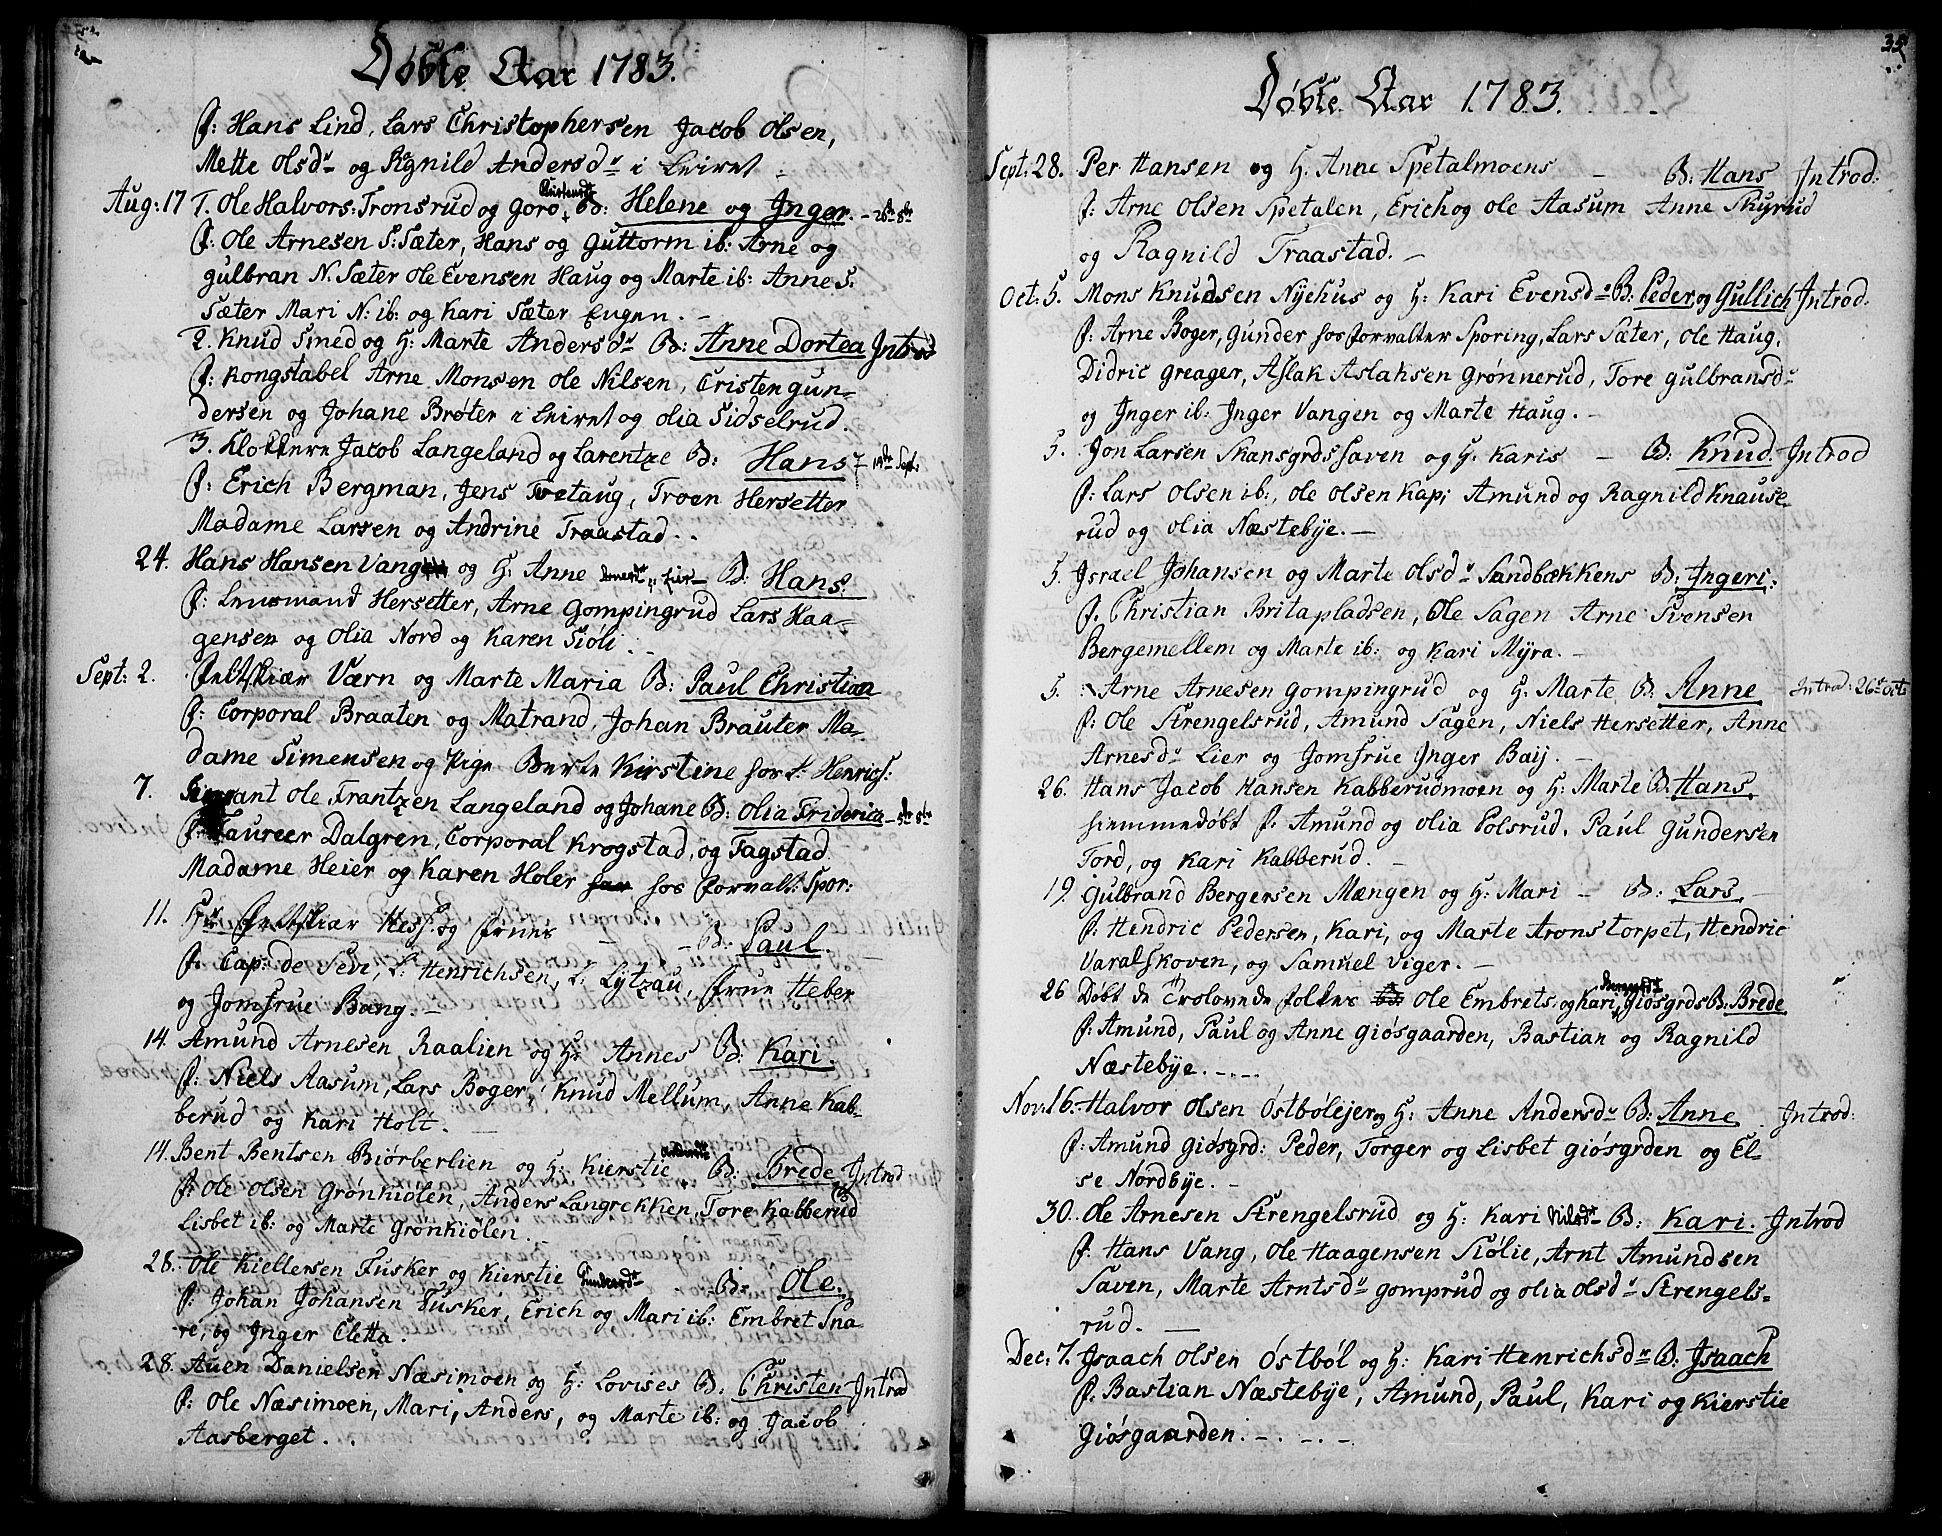 Døbte Aar 1783.
F: Hans Lind, Lars Christophersen Jacob Olsen,
Mette Olsdr og Ragnild Andersdr i Leiret
Aug: 17 1. Ole Halvors: Tronsrud og Goro B: Helene og Inger.
F: Ole Arnesen S: Sæter, Hans og Guttorm ib: Arne og
Gulbran N. Sæter Ole Evensen Haug og Marte ib: Anne S.
Sæter Mari N: ib: og Kari Sæter Eugen. -
2. Knud Smed og H: Marte Andersdr B: Anne Dortea Introd
F: Kongstabel Arne Monsen Ole Nilsen, Cristen Gun-
dersen og Johane Brøter i Leiret og Olia Sidselrud.
3. Klokkere Jacob Langeland og Larentze B: Hans
F: Erich Bergman, Jens Tvetaug, Troen Hersetter
Madame Larsen og Andrine Traastad.
24. Hans Hansen Vang og H: Anne Arnesdr Lier B: Hans.
F: Lensmand Hersetter, Arne Gompingrud Lars Haa-
gensen og Olia Nord og Karen Siøli.
Sept: 2. Feltskiær Værn og Marte Maria B: Paul Christian
F: Corporal Braaten og Matrand, Johan Brauter Ma-
dame Simensen og Pige Berte Kirstine hos L: Henrichs:
7. Sergeant Ole Frantzen Langeland og Johane B: Olia Friderica
F: Faureer Dalgren, Corporal Krogstad, og Fagstad
Madame Heier og Karen Holer hos Forvalt: Spor:
11. Hr Feltskiær Hess og Frues - B: Paul.
F: Cap: de Seve, L: Henrichsen, L: Lytzau, Frue Heber
og Jomfrue Bang. -
14. Amund Arnesen Raalien og H: Annes B: Kari.
F: Niels Aasum, Lars Boger, Knud Mellum, Anne Kab-
berud og Kari Holt. -
14. Bent Bentsen Biørberlien og H: Kierstie B: Brede Introd
F: Ole Olsen Grønkiølen, Anders Langrekken, Tore Kabberud
Lisbet ib: og Marte Grønkiølen.
28. Ole Kiellersen Fusker og Kierstie Gundersdr B: Ole.
F: Johan Johansen Fusker, Erich og Mari ib: Embret Sna
re, og Inger Cletta.
28. Auen Danielsen Næsimoen og H: Lovises B: Christen Introd
F: Ole Næsimoen, Mari, Anders, og Marte ib: og Jacob
Aasberget.
35
Døbte Aar 1783.
Sept: 28. Per Hansen og H: Anne Spetalmoens - B: Hans Introd:
F: Arne Olsen Spetalen, Erich og Ole Aasum Anne Skyrud
og Ragnild Traastad. -
Oct: 5. Mons Knudsen Nyehus og H: Kari Evensdr B: Peder og Gullich Introd.
F: Arne Boger, Gunder hos Forvalter Sporing, Lars Sæter, Ole Haug.
Didric Greager, Aslak Aslaksen Grønnerud, Tore Gulbransdr
og Inger ib: Inger Vangen og Marte Haug. -
5. Jon Larsen Skansgrdssaven og H: Karis - B: Knud. Introd
F: Lars Olsen ib:, Ole Olsen Kap: Amund og Ragnild Knause-
rud og Olia Næstebye. -
5. Israel Johansen og Marte Olsdr Sandbækkens B: Ingeri:
F. Christian Britapladsen, Ole Sagen Arne Svensen
Bergemellem og Marte ib: og Kari Myra. -
5. Arne Arnesen Gompingrud og H: Marte B: Anne - Introd: 26t Octb
F: Ole Strengelsrud, Amund Sagen, Niels Hersetter, Anne
Arnesdr Lier og Jomfrue Inger Baij. -
26. Hans Jacob Hansen Kabberudmoen og H: Marte B: Hans
hiemmedøbt F: Amund og Olia Polsrud, Paul Gundersen
Tord, og Kari Kabberud. -
19. Gulbrand Bergersen Mængen og H: Mari - B: Lars. -
F: Hendric Pedersen, Kari, og Marte Aronstorpet, Hendric
Varalskoven, og Samuel Viger. -
26 Døbt de Trolovede Folkes Ole Embrets: og Kari Giøsgrds B: Brede
F: Amund, Paul og Anne Giøsgaarden, Bastian og Ragnild
Næstebye. -
Nov: 16: Halvor Olsen Østbølejer og H: Anne Andersdr B: Anne Introd:
F: Amund Giøsgrd: Peder, Torger og Lisbet Giøsgrden og El-
se Nordbye. -
30. Ole Arnesen Strengelsrud og H: Kari Nilsdr B: Kari. Introd
F: Hans Vang, Ole Haagensen Siølie, Arnt Amundsen
Saven, Marte Arntsdr Gomprud og Olia Olsdr Strengels-
rud. -
Dec: 7. Isaach Olsen Østbøl og H: Kari Henrichsdr B: Isaach
F: Bastian Næstebye, Amund, Paul, Kari og Kierstie
Giøsgaarden. -